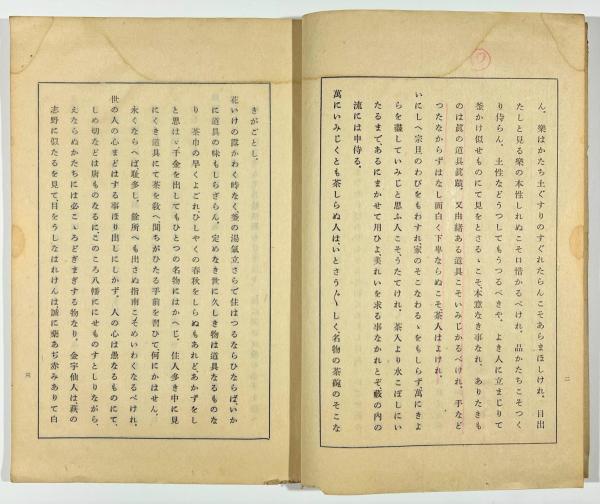 ん。樂はかたち土ぐすりのすぐれたらんこそあらまほしけれ。目出
たしと見る樂の本性しれぬこそ口惜かるべけれ。品かたちこそつく
り侍らん。土性などうつしてもうつるべきや。よき人に立まじりて
釜かけ似せものにて見をとさるゝこそ、本意なき事なれ。ありたきも
のは眞の道具眞蹟。又由緒ある道具こそいみじかるべけれ。手など
つたなからずはなし面白く下卑ならぬこそ、茶人はよけれ。
いにしへ宗旦のわびをもわすれ、家のそこなわるゝをもしらず、萬にきよ
らを盡していみじと思ふ人こそ、うたてけれ。茶入より水こぼしにい
たるまで、あるにまかせて用ひよ、美れいを求る事なかれとぞ、藪の内の
流には申侍る。
萬にいみじくとも茶しらぬ人は、いとさう〴〵しく、名物の茶碗のそこな
二
きがごとし。
花いけの露かわく時なく、釜の湯氣立さらで住はつるならひならば、いか
に道具の味もしらざらん。定めなき世に久しき物は道具なるものな
り。茶巾の早くよごれ、ひしやくの春秋をしらぬもあれど、あかずをし
と思はゞ千金を出してもひとつの名物にはかへじ。住人多き中に見
にくき道具にて茶を敎へ、聞ちがひたる手前を習ひて何にかはせん。
永くならへば耻多し。餘所へも出さぬ指南こそめいわくなるべけれ。
世の人の心まどはする事ほり出しにしかず。人の心は愚なるものにて、
しめ切などは唐ものなるに、このころ八幡ににせものすとしりながら、
えならぬかたちには必こゝろどぎまぎする物なり。金宇仙人は萩の
志野に似たるを見て目をうしなはれけんは、誠に藥あぢ赤みありて白
三